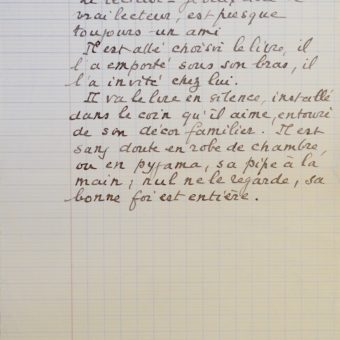 vrai lecteur, est presque
toujours un ami
Il est allé choisir le livre, il
l'a emporté sous son bras, il
l'a invité chez lui.
Il va le lire en silence, installé
dans le coin qu'il aime, entouré
de son décor familier. Il est
sans doute en robe de chambre,
ou en pyjama, sa pipe à la
main ; nul ne le regarde, sa
bonne foi est entière.